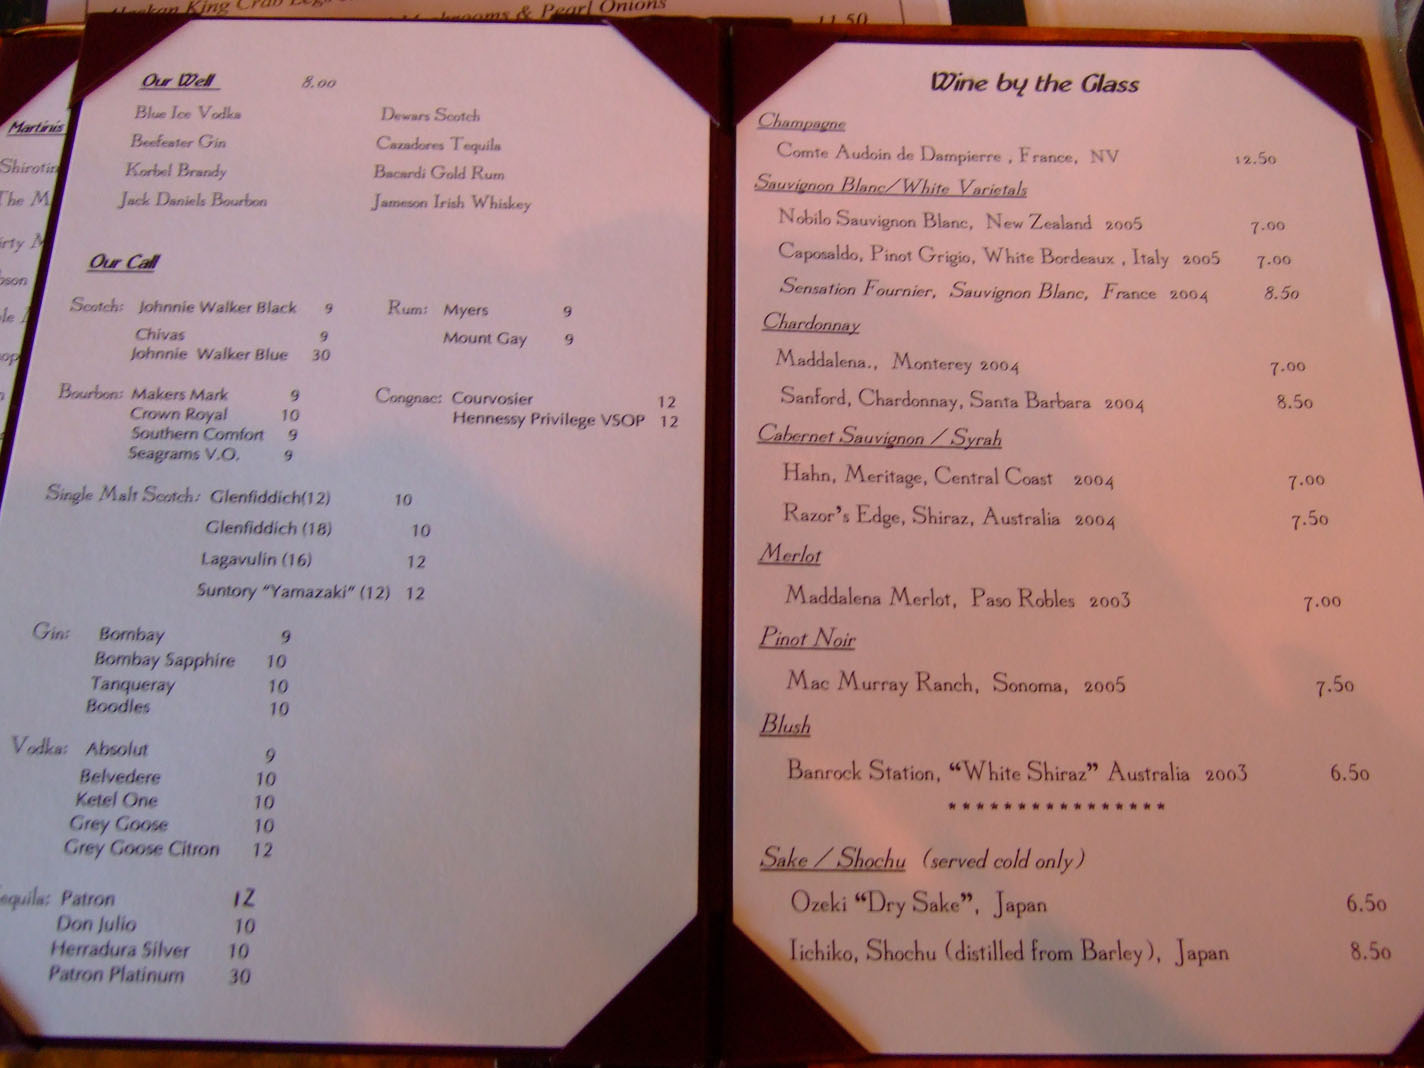 Alaskan King Crab Legs
Mushrooms & Pearl Onions
11.50
Martinis
The M
Our Well 8.00
Blue Ice Vodka Dewars Scotch
Beefeater Gin Cazadores Tequila
Korbel Brandy Bacardi Gold Rum
Jack Daniels Bourbon Jameson Irish Whiskey
Our Call
Scotch: Johnnie Walker Black 9 Rum: Myers 9
Chivas 9 Mount Gay 9
Johnnie Walker Blue 30
Bourbon: Makers Mark 9 Congnac: Courvosier 12
Crown Royal 10 Hennessy Privilege VSOP 12
Southern Comfort 9
Seagrams V.O. 9
Single Malt Scotch: Glenfiddich(12) 10
Glenfiddich (18) 10
Lagavulin (16) 12
Suntory "Yamazaki" (12) 12
Gin: Bombay 9
Bombay Sapphire 10
Tanqueray 10
Boodles 10
Vodka: Absolut 9
Belvedere 10
Ketel One 10
Grey Goose 10
Grey Goose Citron 12
equila: Patron 12
Don Julio 10
Herradura Silver 10
Patron Platinum 30
Wine by the Glass
Champagne
Comte Audoin de Dampierre , France, NV 12.50
Sauvignon Blanc/White Varietals
Nobilo Sauvignon Blanc, New Zealand 2005 7.00
Caposaldo, Pinot Grigio, White Bordeaux , Italy 2005 7.00
Sensation Fournier, Sauvignon Blanc, France 2004 8.50
Chardonnay
Maddalena., Monterey 2004 7.00
Sanford, Chardonnay, Santa Barbara 2004 8.50
Cabernet Sauvignon / Syrah
Hahn, Meritage, Central Coast 2004 7.00
Razor's Edge, Shiraz, Australia 2004 7.50
Merlot
Maddalena Merlot, Paso Robles 2003 7.00
Pinot Noir
Mac Murray Ranch, Sonoma, 2005 7.50
Blush
Banrock Station, "White Shiraz" Australia 2003 6.50
****************
Sake / Shochu (served cold only)
Ozeki "Dry Sake", Japan 6.50
Iichiko, Shochu (distilled from Barley), Japan 8.50